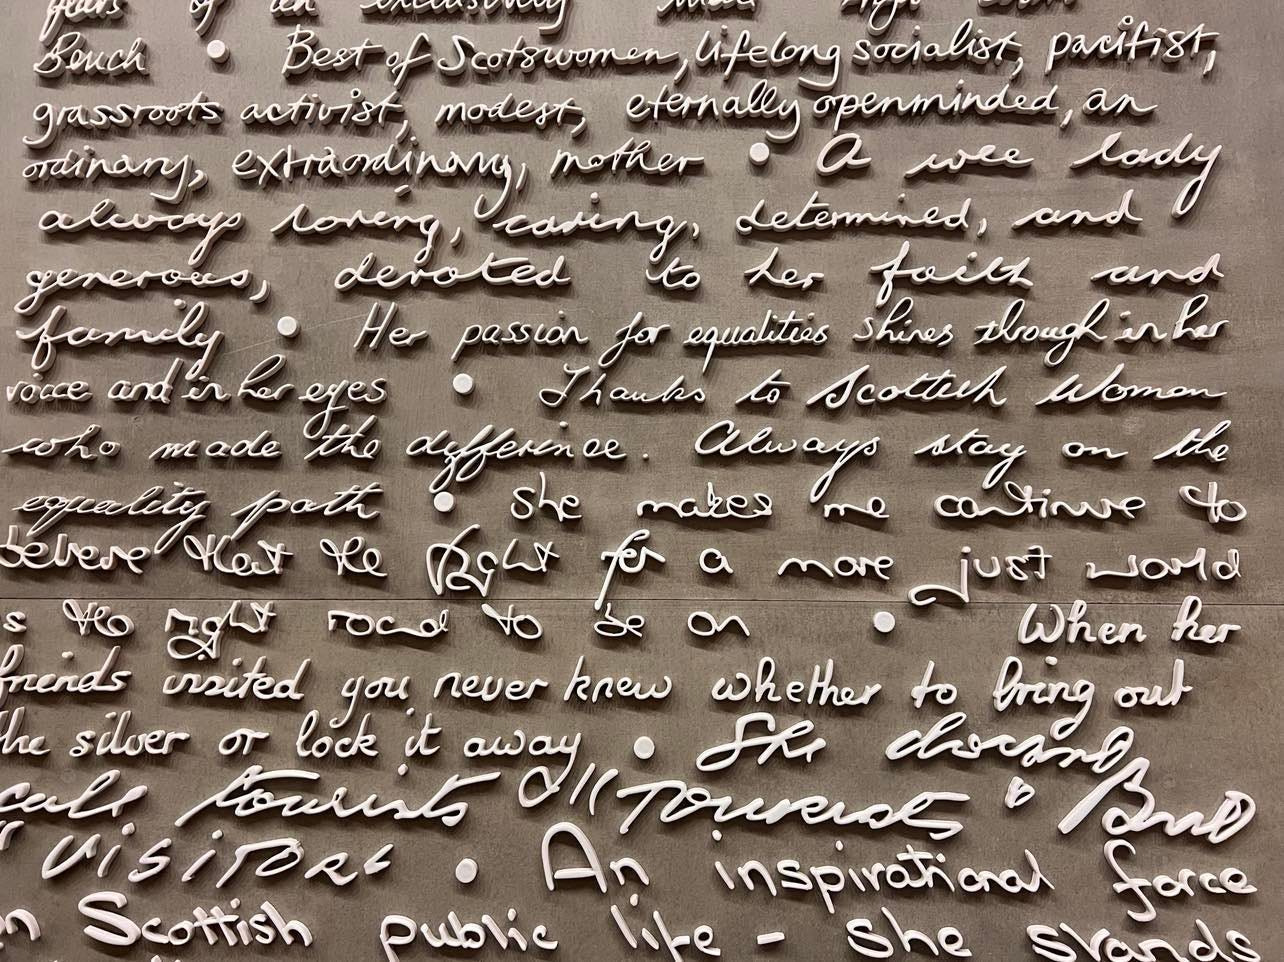 years of an exclusively male High Court
Bench • Best of Scotswomen, lifelong socialist, pacifist,
grassroots activist, modest, eternally openminded, an
ordinary, extraordinary, mother • A wee lady
always loving, caring, determined, and
generous, devoted to her faith and
family • Her passion for equalities shines through in her
voice and in her eyes • Thanks to Scottish Woman
who made the difference. Always stay on the
equality path • She makes me continue to
believe that the fight for a more just world
is the right road to be on • When her
friends visited you never knew whether to bring out
the silver or lock it away • She doesnt
call tourists all "Towerists" But
"VISITORS • An inspirational force
in Scottish public life - she stands